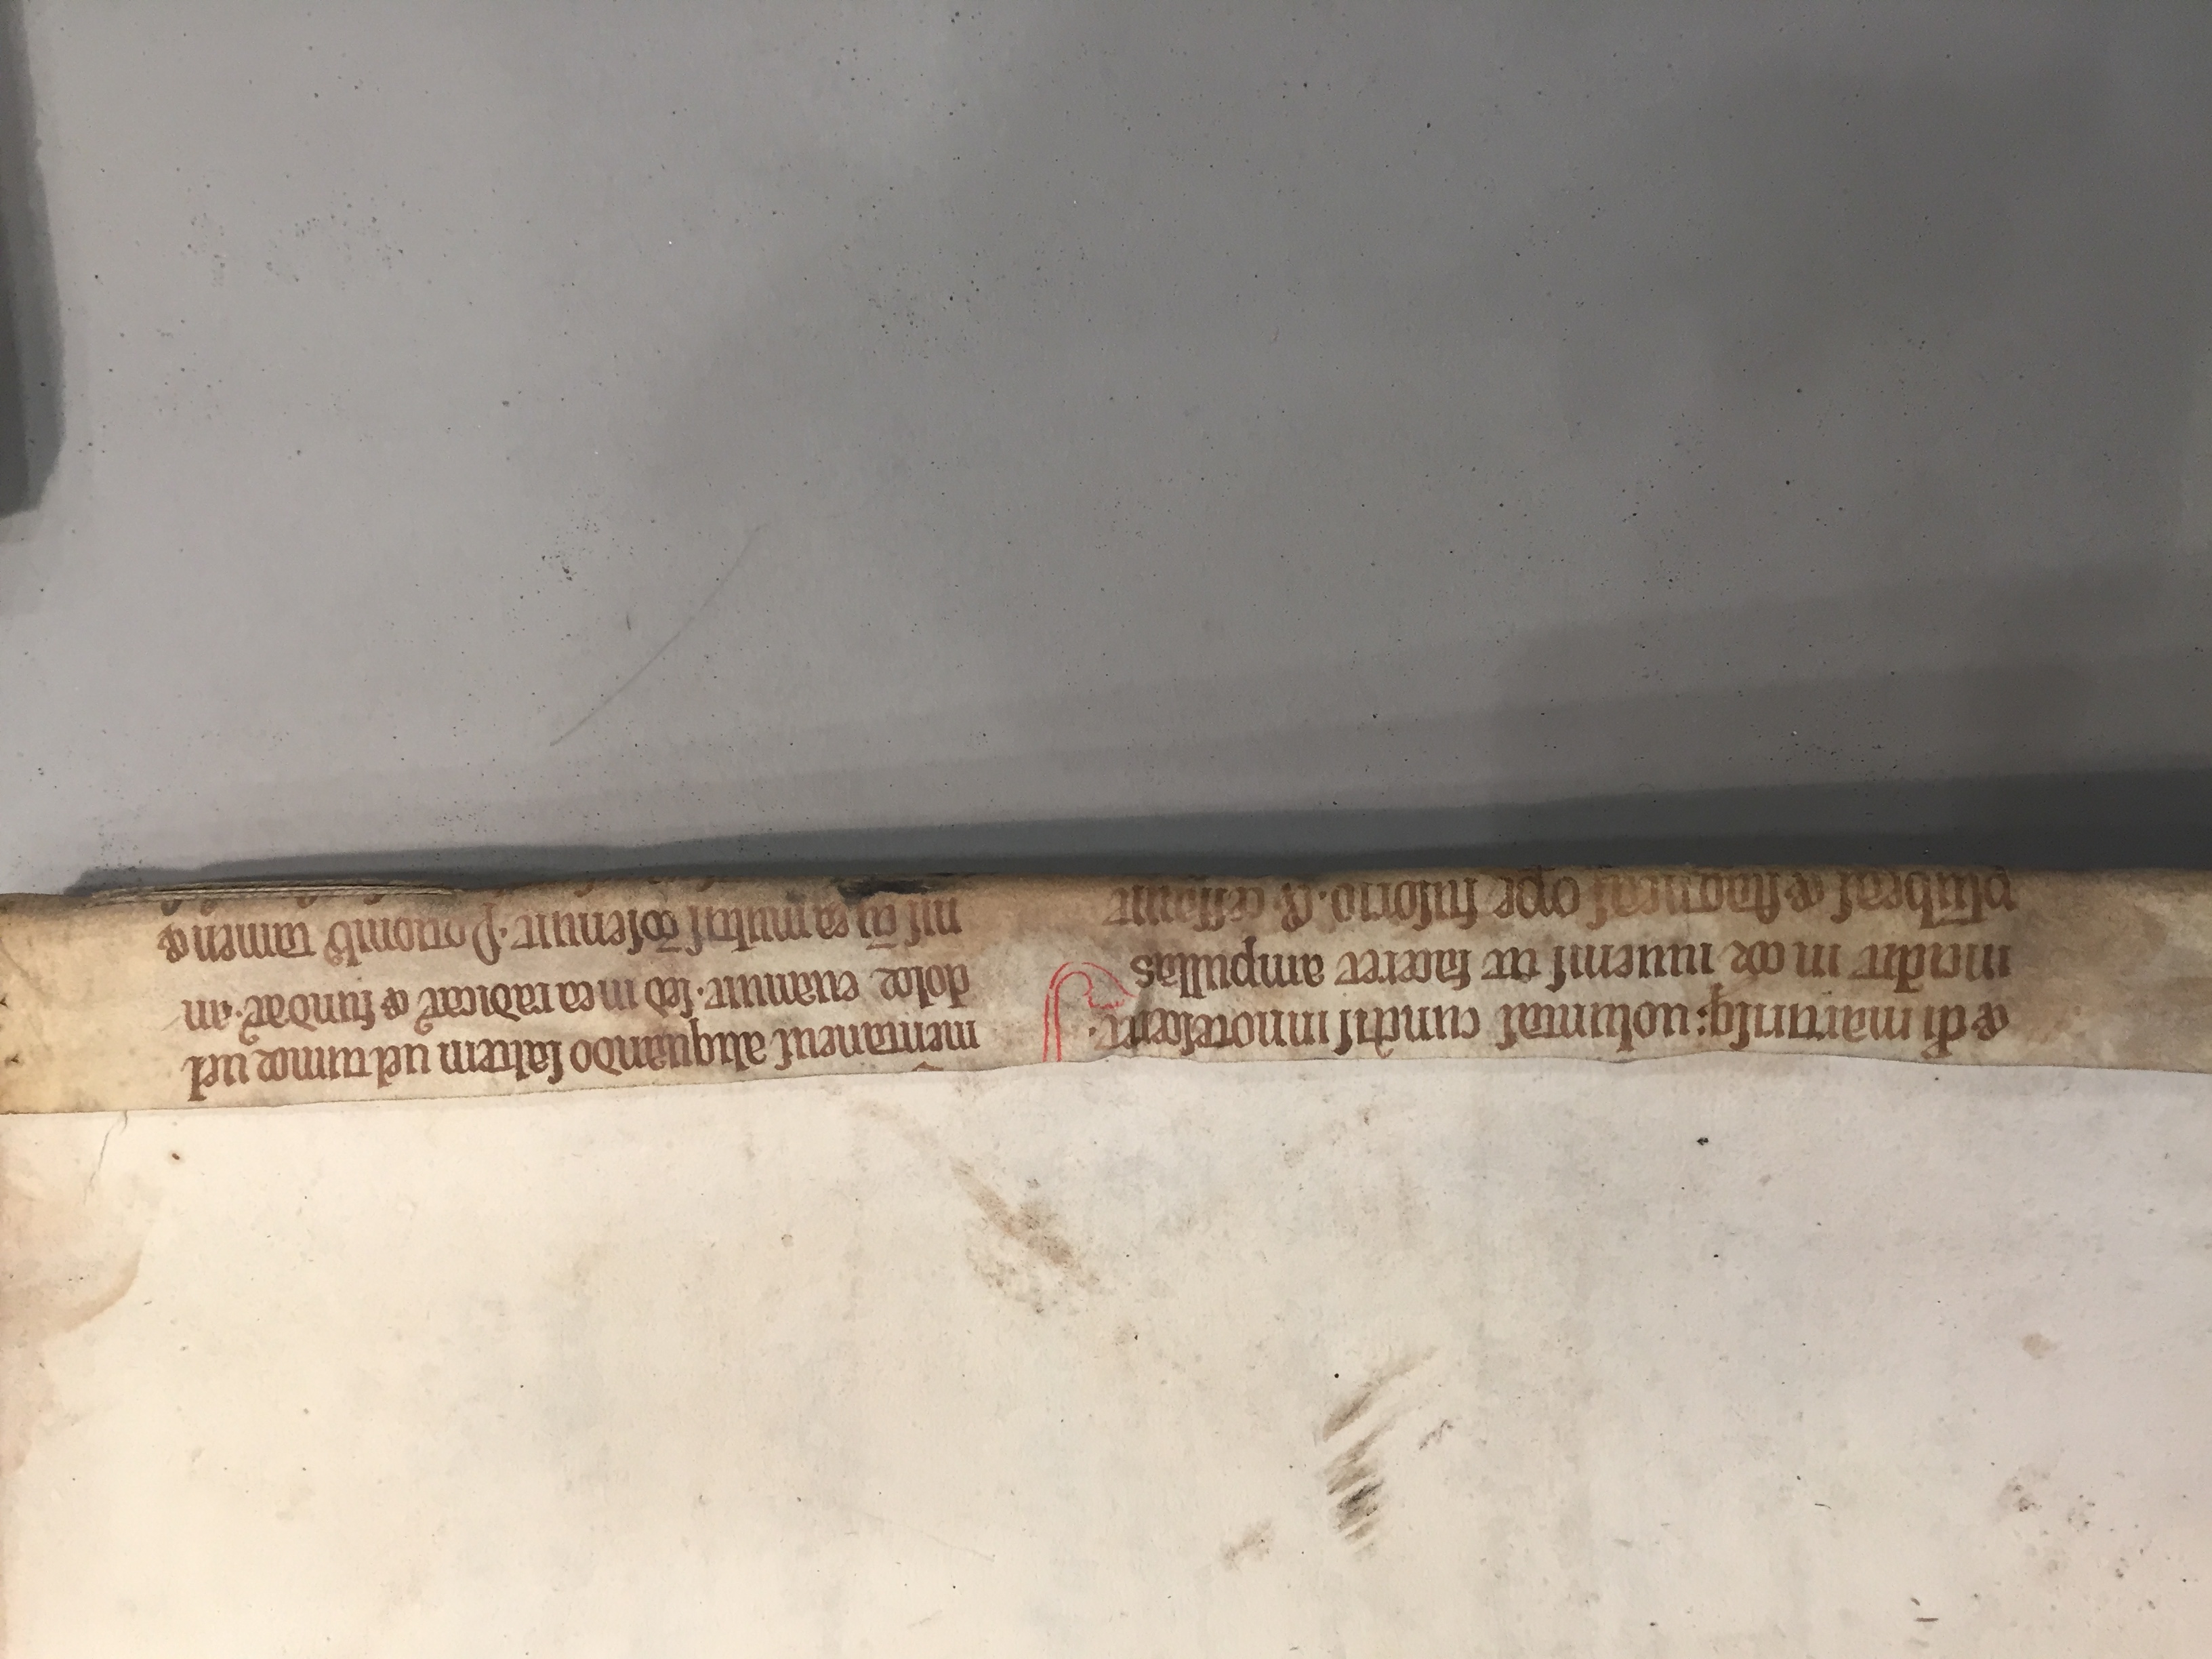 & dī martirisq; uoluntas cunctis innotesceret.
incidit in cor iuuenis ut faceret ampullas
plūbeas & stagneas ope fusorio. & cessauit
mēntaneus aliquando saltem uel tumor uel
dolor euanuit. sed in ea radicat᷒ & fundat᷒. an
nis cū ea multis cōsenuit. Potionib᷒ tamen &